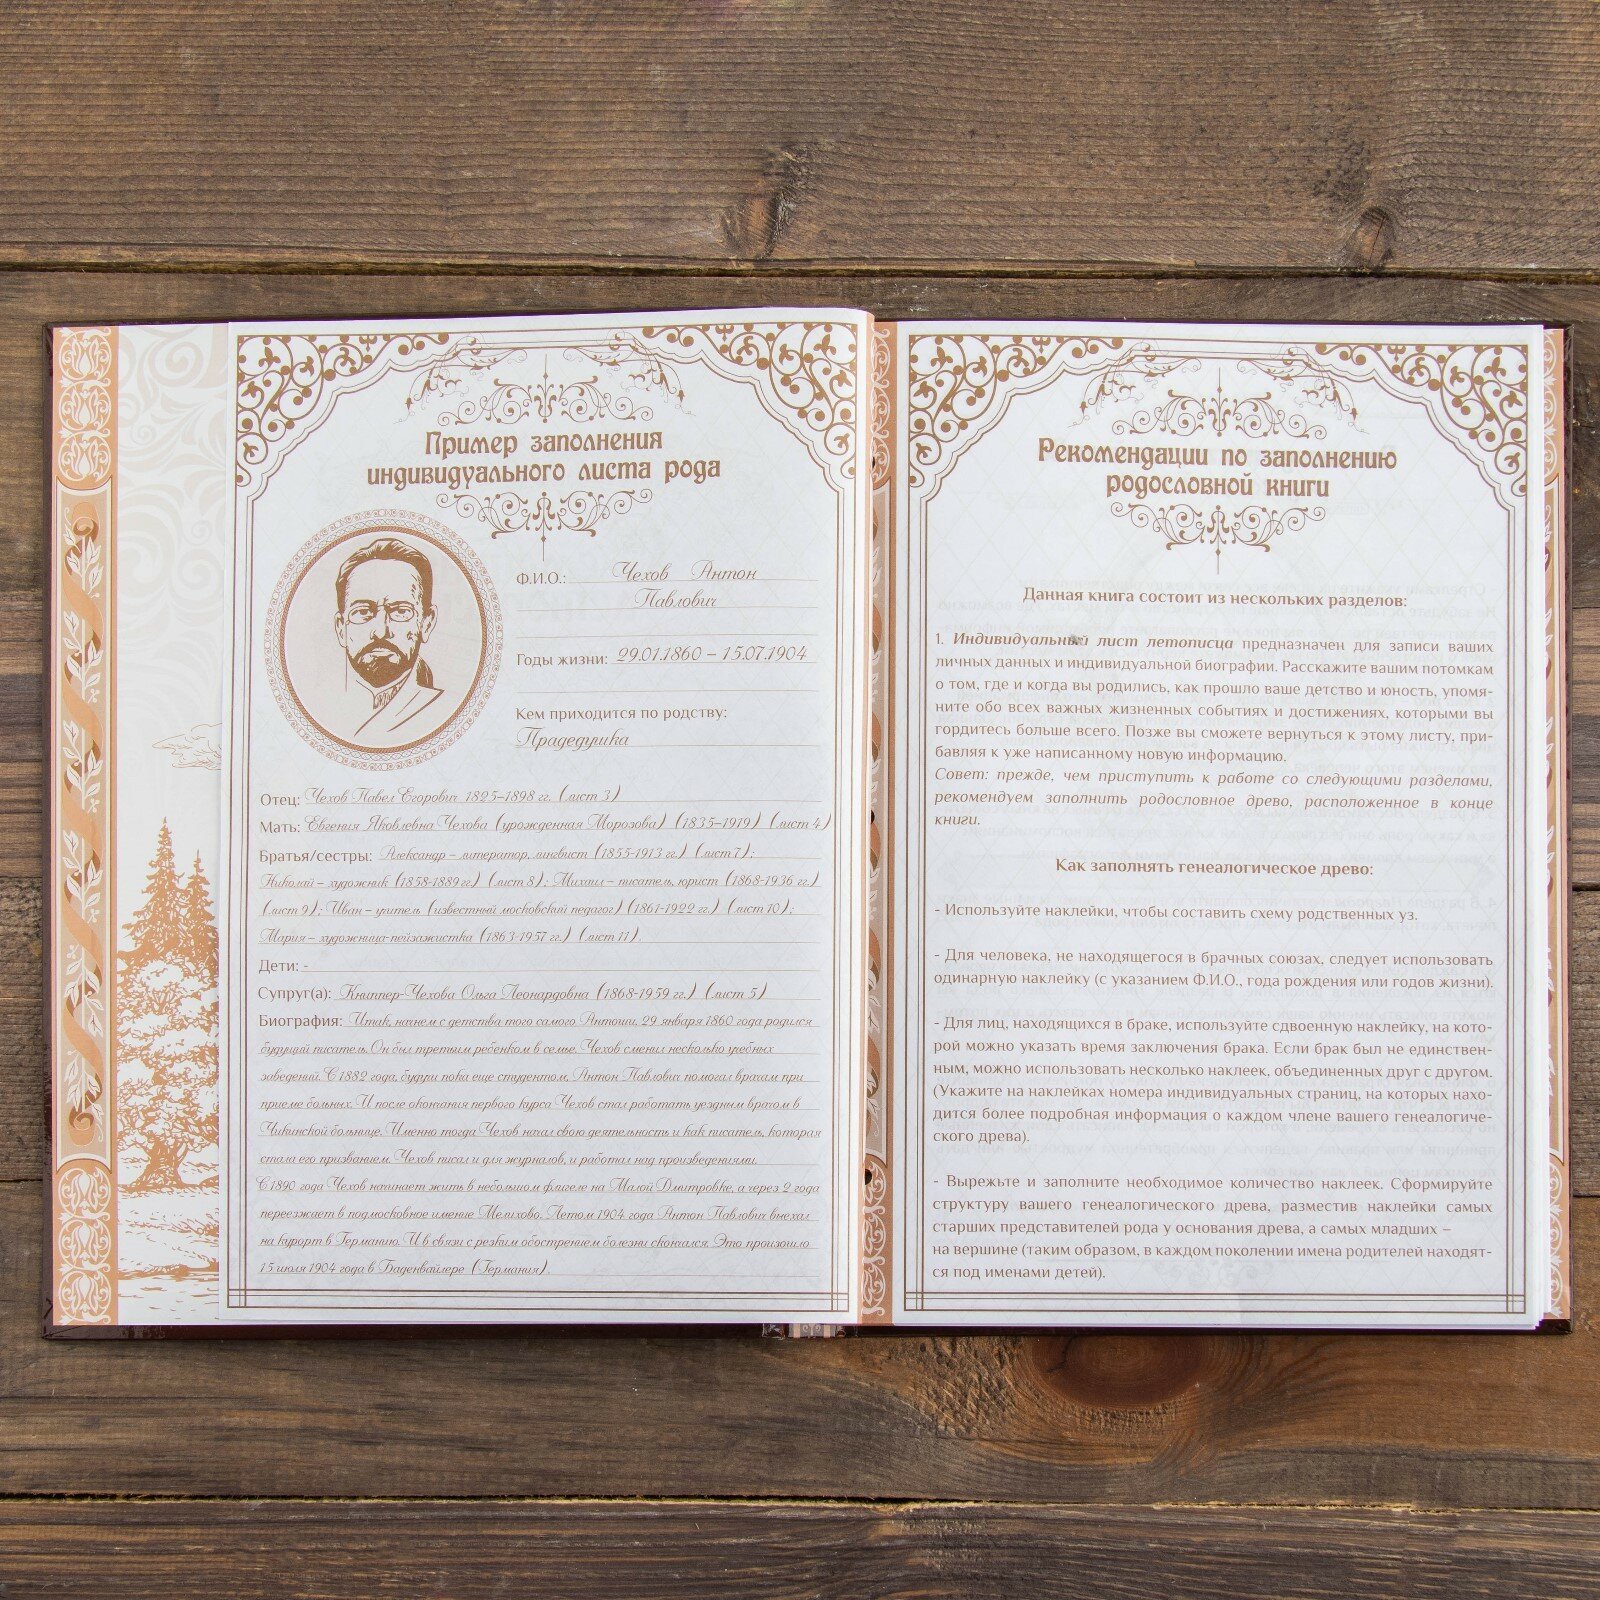 Пример заполнения
индивидуального листа рода
Ф.И.О.: Чехов Антон
Павлович
Годы жизни: 29.01.1860 – 15.07.1904
Кем приходится по родству:
Прадедушка
Отец: Чехов Павел Егорович 1825–1898 гг. (лист 3)
Мать: Евгения Яковлевна Чехова (урожденная Морозова) (1835–1919) (лист 4)
Братья/сестры: Александр – литератор, лингвист (1855-1913 гг.) (лист 7);
Николай – художник (1858-1889 гг.) (лист 8); Михаил – писатель, юрист (1868-1936 гг.)
(лист 9); Иван – учитель (известный московский педагог) (1861-1922 гг.) (лист 10);
Мария – художница-пейзажистка (1863-1957 гг.) (лист 11).
Дети: -
Супруг(а): Книппер-Чехова Ольга Леонардовна (1868-1959 гг.) (лист 5)
Биография: Итак, начнем с детства того самого Антоши. 29 января 1860 года родился
будущий писатель. Он был третьим ребенком в семье. Чехов сменил несколько учебных
заведений. С 1882 года, будучи пока еще студентом, Антон Павлович помогал врачам при
приеме больных. И после окончания первого курса Чехов стал работать уездным врачом в
Чикинской больнице. Именно тогда Чехов начал свою деятельность и как писатель, которая
стала его призванием. Чехов писал и для журналов, и работал над произведениями.
С 1890 года Чехов начинает жить в небольшом флигеле на Малой Дмитровке, а через 2 года
переезжает в подмосковное имение Мелихово. Летом 1904 года Антон Павлович выехал
на курорт в Германию. И в связи с резким обострением болезни скончался. Это произошло
15 июля 1904 года в Баденвайлере (Германия).
Рекомендации по заполнению
родословной книги
Данная книга состоит из нескольких разделов:
1. Индивидуальный лист летописца предназначен для записи ваших
личных данных и индивидуальной биографии. Расскажите вашим потомкам
о том, где и когда вы родились, как прошло ваше детство и юность, упомя-
ните обо всех важных жизненных событиях и достижениях, которыми вы
гордитесь больше всего. Позже вы сможете вернуться к этому листу, при-
бавляя к уже написанному новую информацию.
Совет: прежде, чем приступить к работе со следующими разделами,
рекомендуем заполнить родословное древо, расположенное в конце
книги.
Как заполнять генеалогическое древо:
- Используйте наклейки, чтобы составить схему родственных уз.
- Для человека, не находящегося в брачных союзах, следует использовать
одинарную наклейку (с указанием Ф.И.О., года рождения или годов жизни).
- Для лиц, находящихся в браке, используйте сдвоенную наклейку, на кото-
рой можно указать время заключения брака. Если брак был не единствен-
ным, можно использовать несколько наклеек, объединенных друг с другом.
(Укажите на наклейках номера индивидуальных страниц, на которых нахо-
дится более подробная информация о каждом члене вашего генеалогиче-
ского древа).
- Вырежьте и заполните необходимое количество наклеек. Сформируйте
структуру вашего генеалогического древа, разместив наклейки самых
старших представителей рода у основания древа, а самых младших –
на вершине (таким образом, в каждом поколении имена родителей находят-
ся под именами детей).